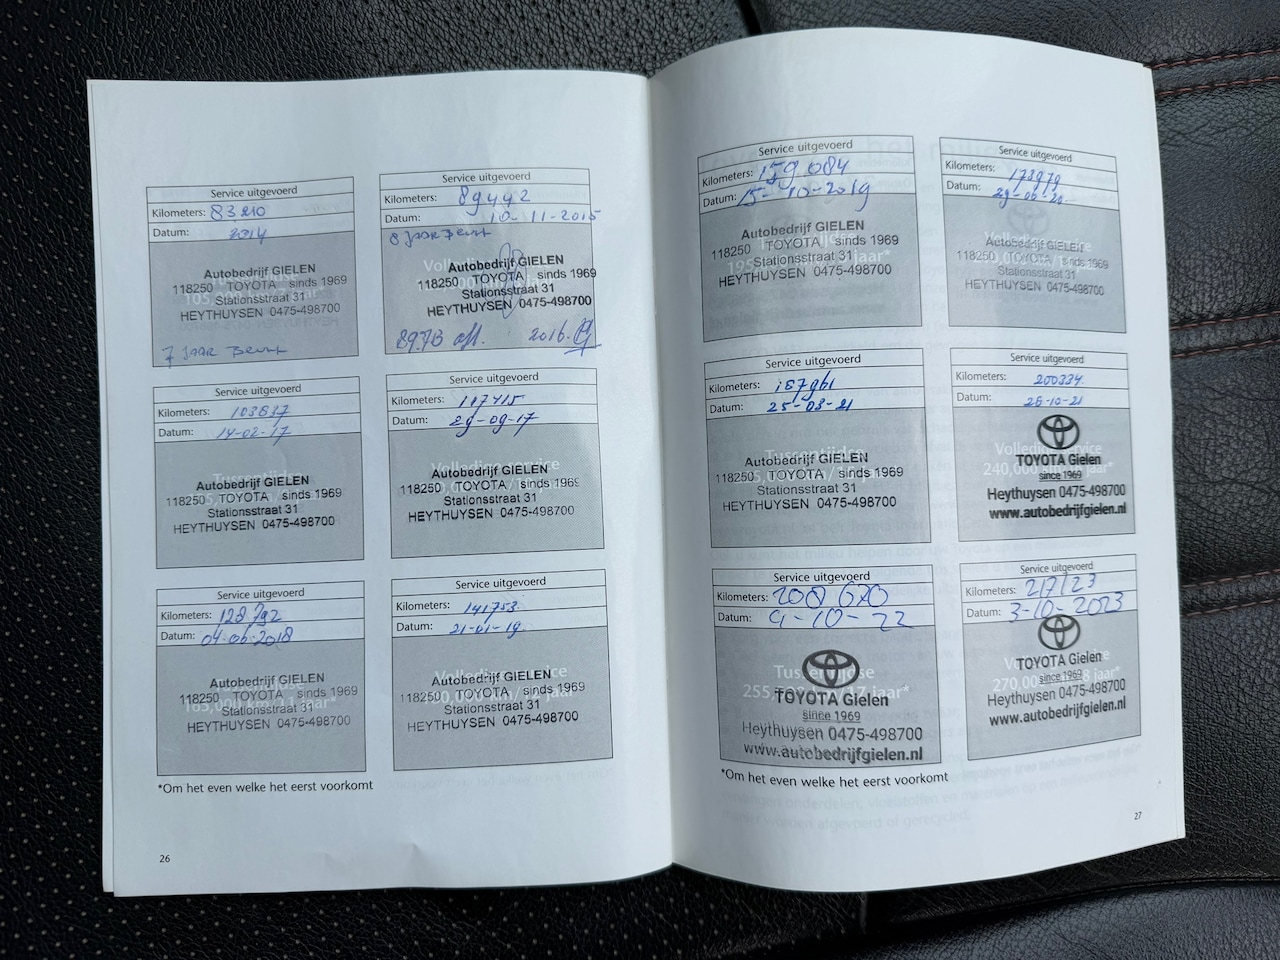 Service uitgevoerd
Kilometers: 83210
Datum: 2014
Autobedrijf GIELEN
118250 TOYOTA sinds 1969
Stationsstraat 31
HEYTHUYSEN 0475-498700
7 JAAR Beurt
Service uitgevoerd
Kilometers: 89442
Datum: 10-11-2015
8 JAAR Beurt
Autobedrijf GIELEN
118250 TOYOTA sinds 1969
Stationsstraat 31
HEYTHUYSEN 0475-498700
2016
Service uitgevoerd
Kilometers: 103637
Datum: 14-02-17
Tussentijdse
Autobedrijf GIELEN
118250 TOYOTA sinds 1969
Stationsstraat 31
HEYTHUYSEN 0475-498700
Service uitgevoerd
Kilometers: 117415
Datum: 29-09-17
Volledige service
Autobedrijf GIELEN
118250 TOYOTA sinds 1969
Stationsstraat 31
HEYTHUYSEN 0475-498700
Service uitgevoerd
Kilometers: 128792
Datum: 04-06-2018
Autobedrijf GIELEN
118250 TOYOTA sinds 1969
Stationsstraat 31
HEYTHUYSEN 0475-498700
Service uitgevoerd
Kilometers: 141753
Datum: 21-01-19
Volledige service
Autobedrijf GIELEN
118250 TOYOTA sinds 1969
Stationsstraat 31
HEYTHUYSEN 0475-498700
*Om het even welke het eerst voorkomt
26
Service uitgevoerd
Kilometers: 159084
Datum: 15-10-2019
Autobedrijf GIELEN
118250 TOYOTA sinds 1969
Stationsstraat 31
HEYTHUYSEN 0475-498700
Service uitgevoerd
Kilometers: 173979
Datum: 29-06-20
Autobedrijf GIELEN
118250 TOYOTA sinds 1969
Stationsstraat 31
HEYTHUYSEN 0475-498700
Service uitgevoerd
Kilometers: 187961
Datum: 25-03-21
Autobedrijf GIELEN
118250 TOYOTA sinds 1969
Stationsstraat 31
HEYTHUYSEN 0475-498700
Service uitgevoerd
Kilometers: 200334
Datum: 26-10-21
Volledige service
240,000
jaar*
TOYOTA Gielen
since 1969
Heythuysen 0475-498700
www.autobedrijfgielen.nl
Service uitgevoerd
Kilometers: 208060
Datum: 9-10-22
Tussentijdse
255, 17 jaar*
TOYOTA Gielen
since 1969
Heythuysen 0475-498700
www.autobedrijfgielen.nl
Service uitgevoerd
Kilometers: 217123
Datum: 3-10-2023
270,0 jaar*
TOYOTA Gielen
since 1969
Heythuysen 0475-498700
www.autobedrijfgielen.nl
*Om het even welke het eerst voorkomt
27